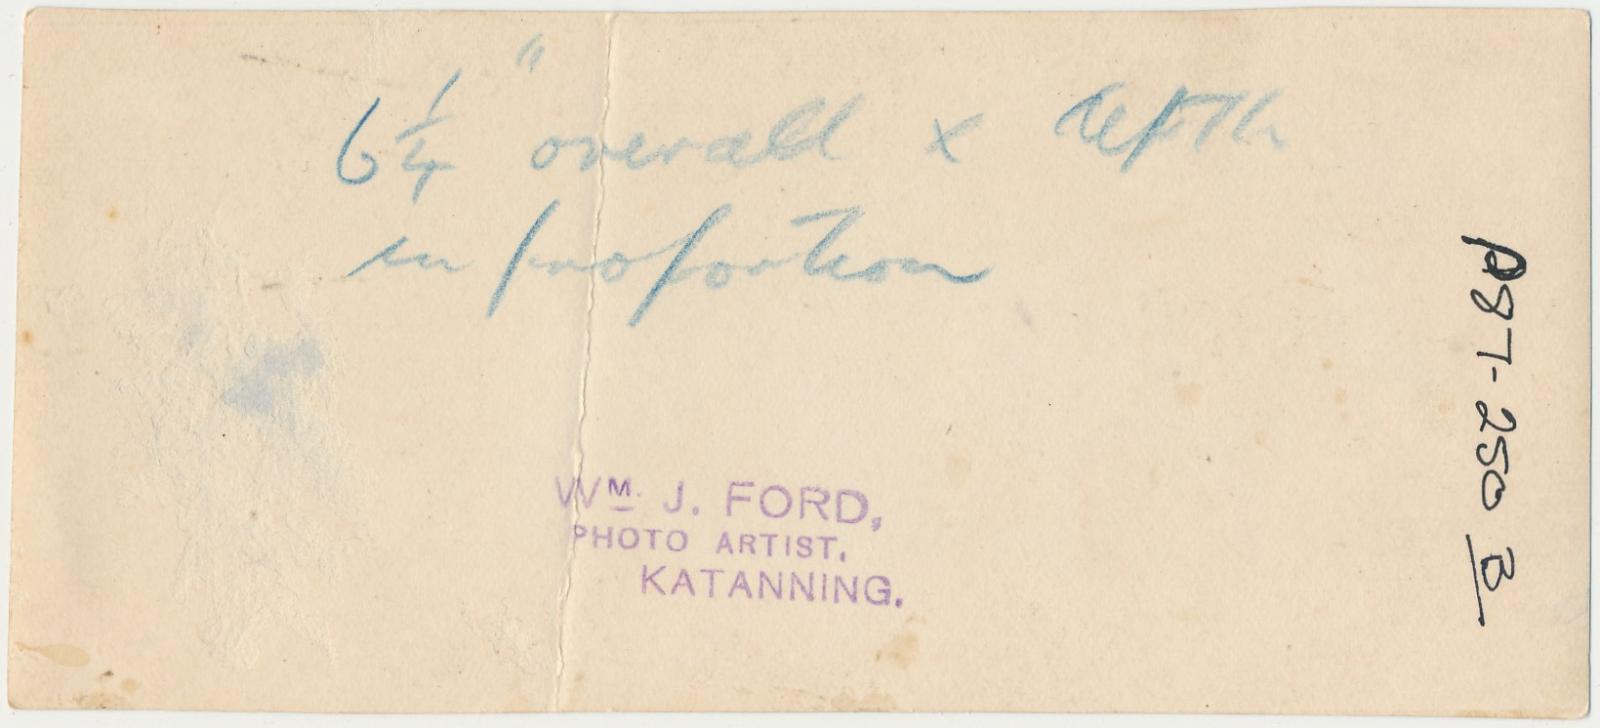 6 1/4" overall x depth
in proportion
WM. J. FORD,
PHOTO ARTIST.
KATANNING.
P87-250 B